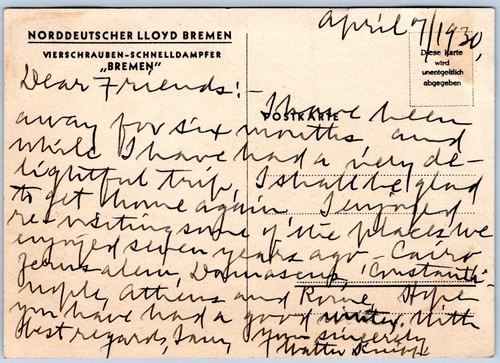 NORDDEUTSCHER LLOYD BREMEN
VIERSCHRAUBEN-SCHNELLDAMPFER
„BREMEN"
April 7/1930,
Diese Karte
wird
unentgeltlich
abgegeben
POSTKARTE
Dear Friends:-
I have been
away for six months and
while I have had a very de-
lightful trip, I shall be glad
to get home again I enjoyed
re-visiting some of the places we
enjoyed seven years ago - Cairo
Jerusalem, Damascus, Constanti-
nople, Athens and Rome, Hope
you have had a good winter. With
best regards, I am,
Yours sincerely
Walter